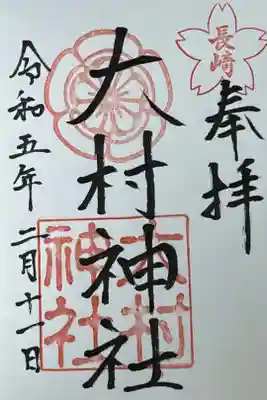 長崎
奉拝
大村神社
大村神社
令和五年 二月十一日